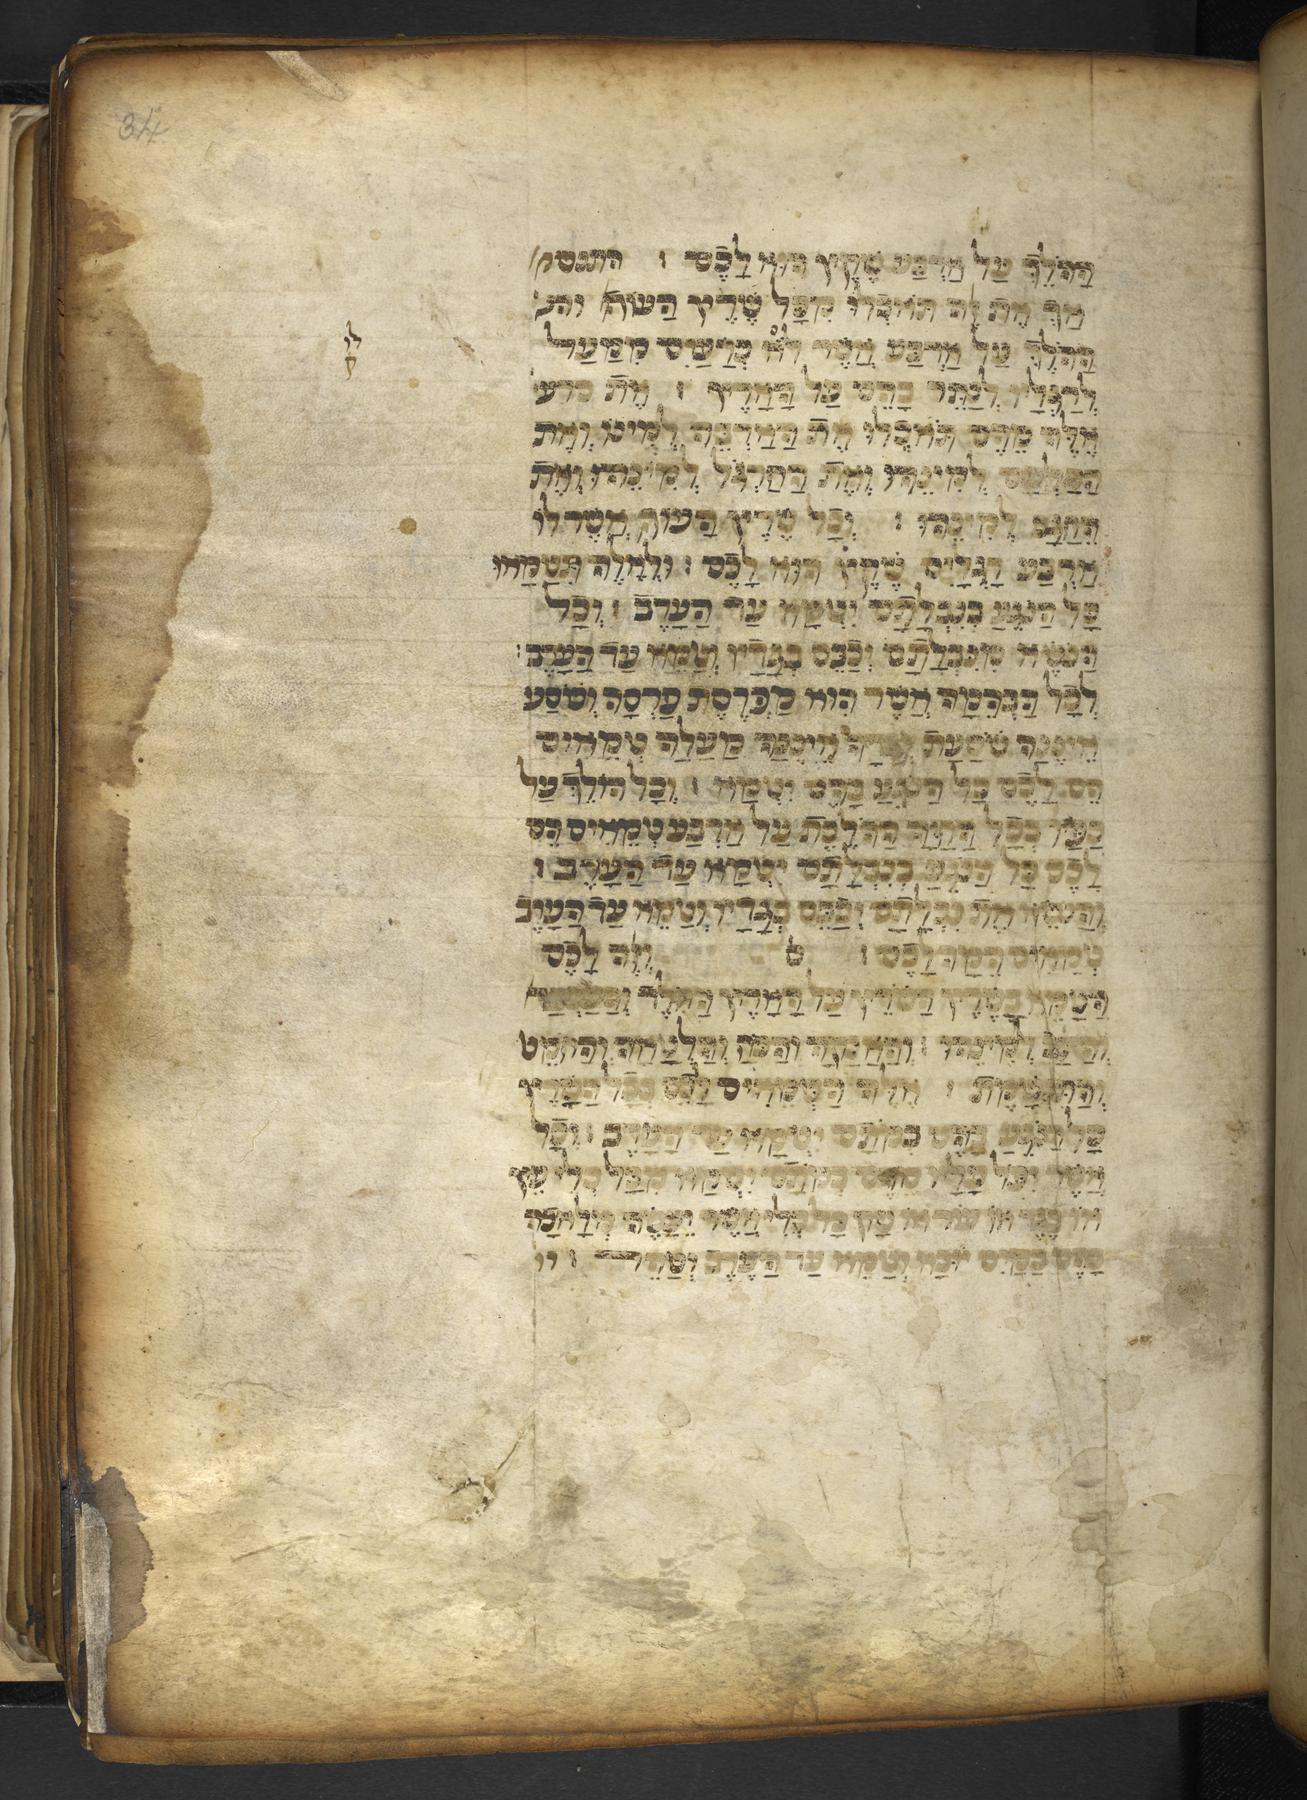 34
ההלך על ארבע שקץ הוא לכם :
אך את זה תאכלו מכל שרץ העוף
ההלך על ארבע אשר לא כרעים ממעל
לו
ק
לרגליו לנתר בהם על הארץ : את
אלה מהם תאכלו את הארבה למינו ואת
הסלעם למינהו ואת החרגל למינהו ואת
החגב למינהו : וכל שרץ העוף אשר לו
ארבע רגלים שקץ הוא לכם : ולאלה תטמאו
כל הנגע בנבלתם יטמא עד הערב : וכל
הנשא מנבלתם יכבס בגדיו וטמא עד הערב :
לכל הבהמה אשר הוא מפרסת פרסה ושסע
איננה שסעת וגרה איננה מעלה טמאים
הם לכם כל הנגע בהם יטמא : וכל הולך על
כפיו בכל החיה ההלכת על ארבע טמאים הם
לכם כל הנגע בנבלתם יטמא עד הערב :
והנשא את נבלתם יכבס בגדיו וטמא עד הערב
טמאים המה לכם : ס וזה לכם
הטמא בשרץ השרץ על הארץ החלד והעכבר
והצב למינהו : והאנקה והכח והלטאה והחמט
והתנשמת : אלה הטמאים לכם בכל השרץ
כל הנגע בהם במתם יטמא עד הערב : וכל
אשר יפל עליו מהם במתם יטמא מכל כלי עץ
או בגד או עור או שק כל כלי אשר יעשה מלאכה
בהם במים יובא וטמא עד הערב וטהר :